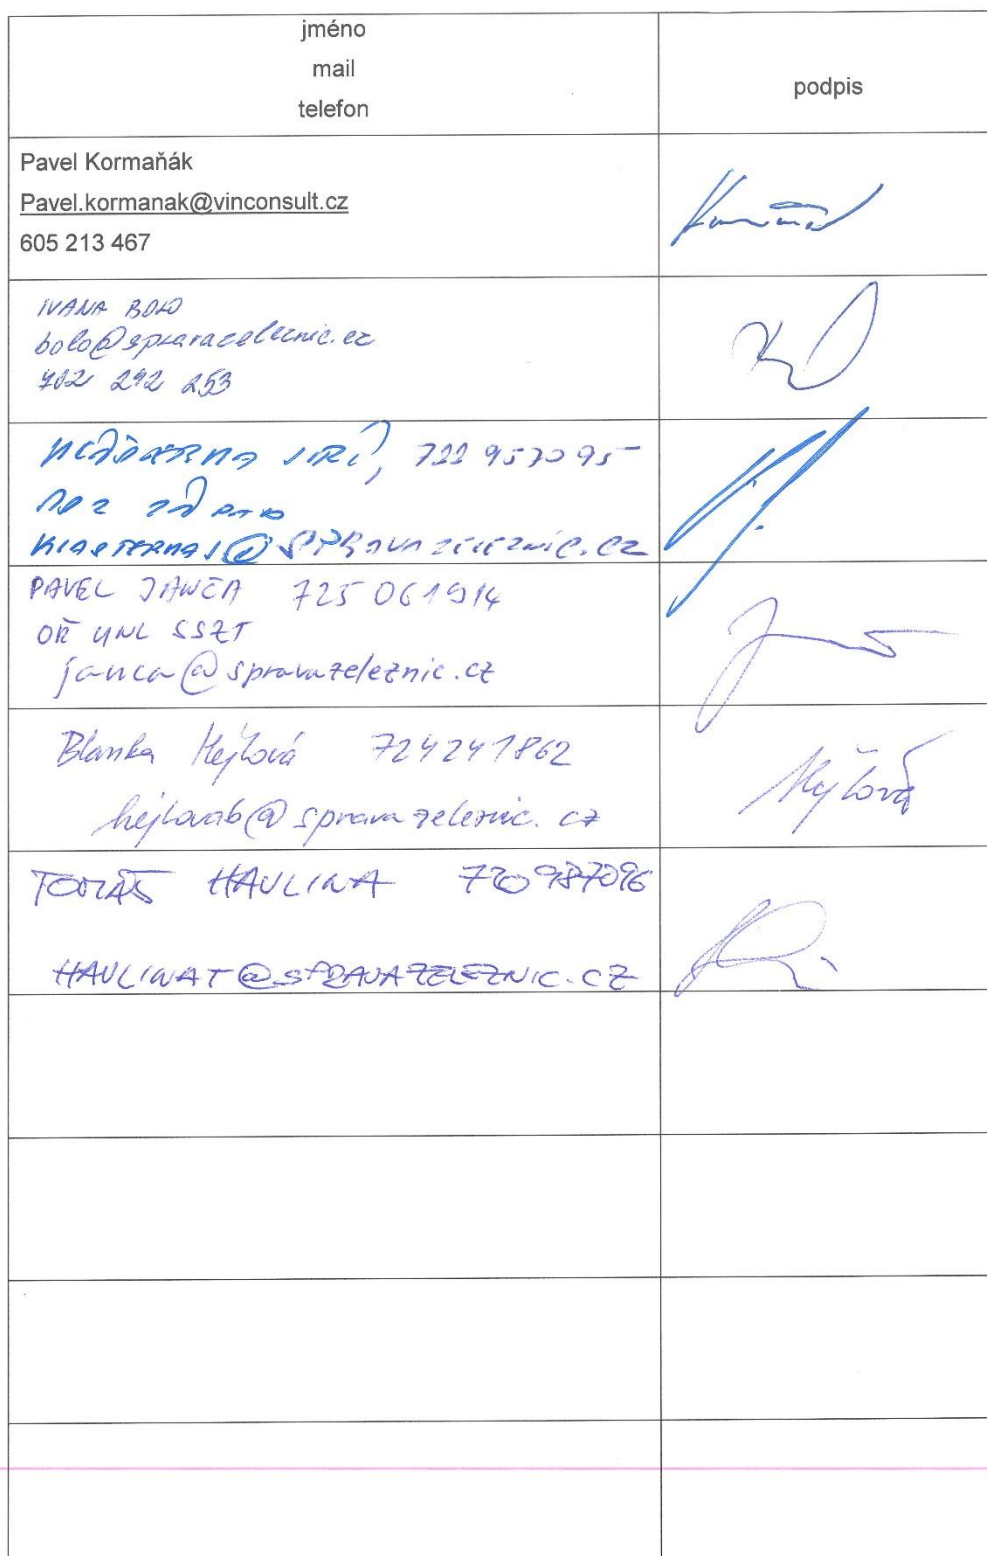 jméno
mail
telefon
podpis
Pavel Kormaňák
Pavel.kormanak@vinconsult.cz
605 213 467
IVANA BOLO
bolo@spravazeleznic.cz
702 292 253
JIŘÍ, 722 957095
KLASTERNAJ@SPRAVAZELEZNIC.CZ
PAVEL JANČA 725 061914
OŘ UNL SSZT
janca@spravazeleznic.cz
Blanka Hejlová 724241862
hejlovab@spravazeleznic.cz
Hejlová
TOMÁŠ HAVLINA 720987096
HAVLINAT@SPRAVAZELEZNIC.CZ